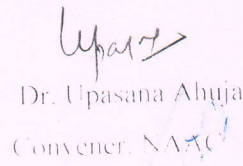 Dr. Upasana Ahuja
Convener, NAAC